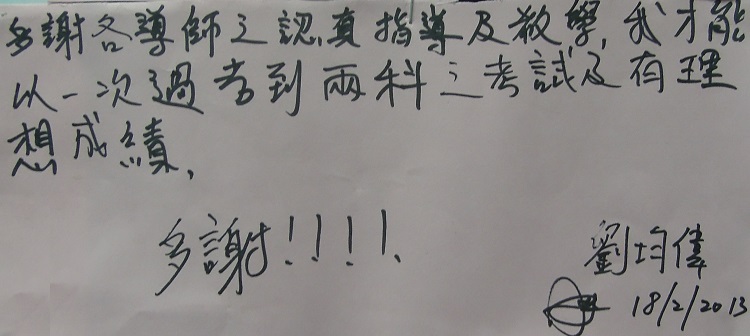 多謝各導師之認真指導及教學,我才能
以一次過考到兩科之考試及有理
想成績,
多謝!!!!.
劉均偉
18/2/2013